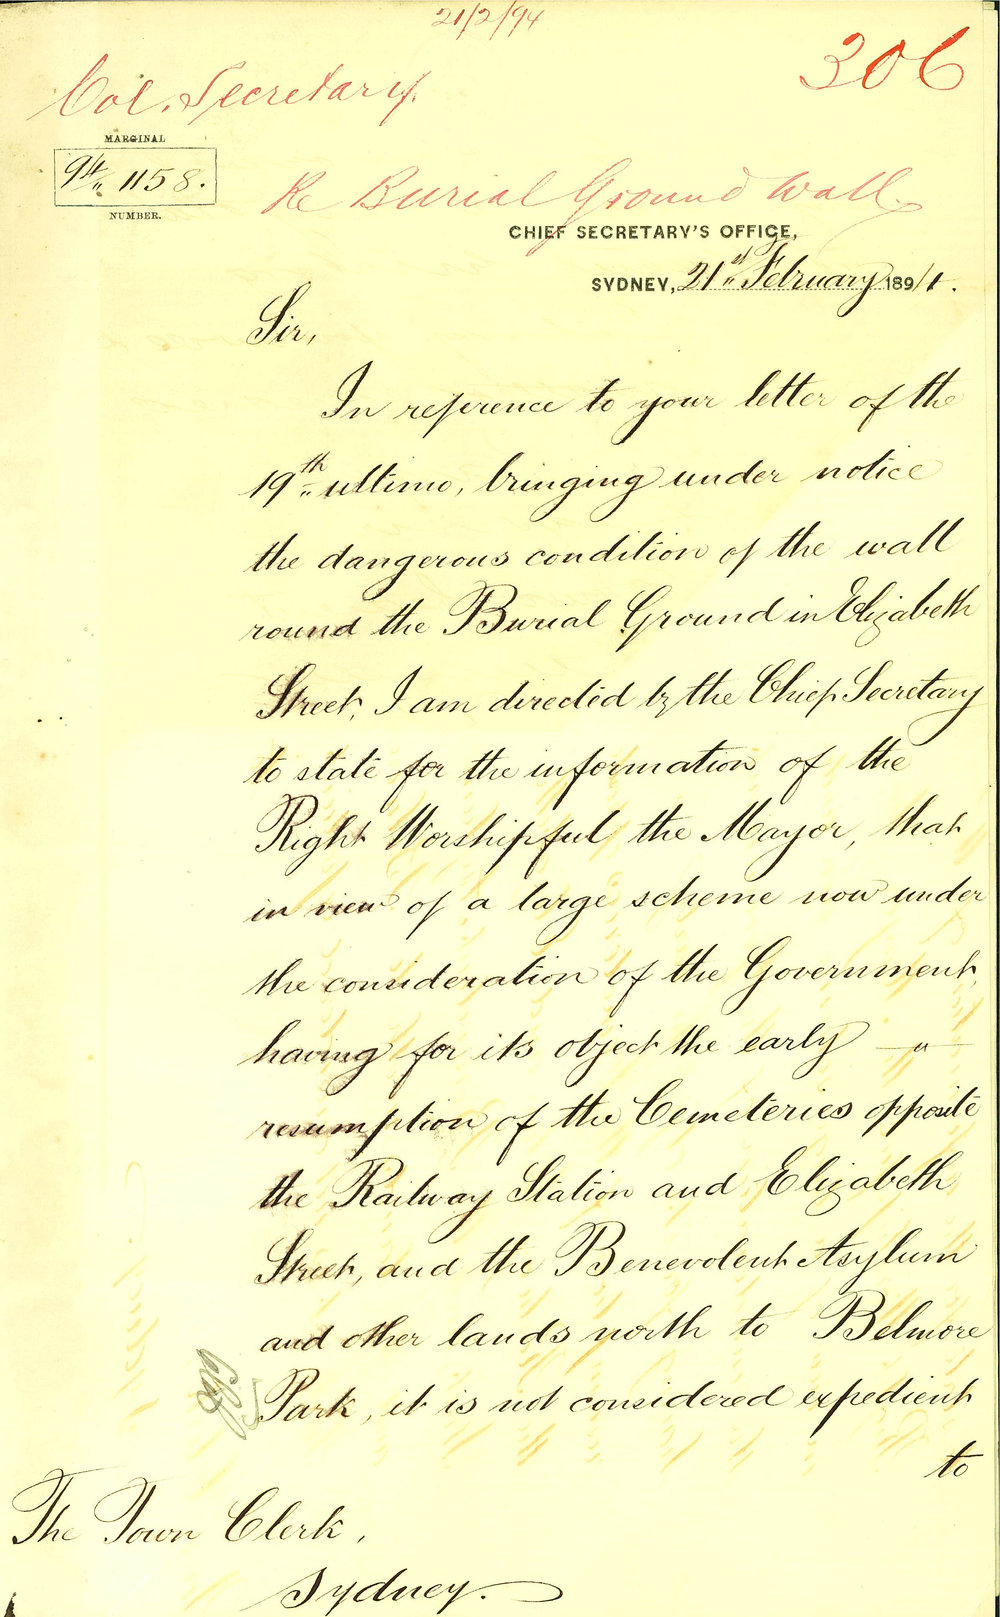 21/2/94
306
Col. Secretary.
MARGINAL
94/1158.
NUMBER.
Re Burial Ground Wall.
CHIEF SECRETARY'S OFFICE,
SYDNEY, 21st February 1894.
Sir,
In reference to your letter of the
19th ultimo, bringing under notice
the dangerous condition of the wall
round the Burial Ground in Elizabeth
Street, I am directed by the Chief Secretary
to state for the information of the
Right Worshipful the Mayor, that
in view of a large scheme now under
the consideration of the Government,
having for its object the early —"—
resumption of the Cemeteries opposite
the Railway Station and Elizabeth
Street, and the Benevolent Asylum
and other lands north to Belmore
Park, it is not considered expedient
to
The Town Clerk,
Sydney.